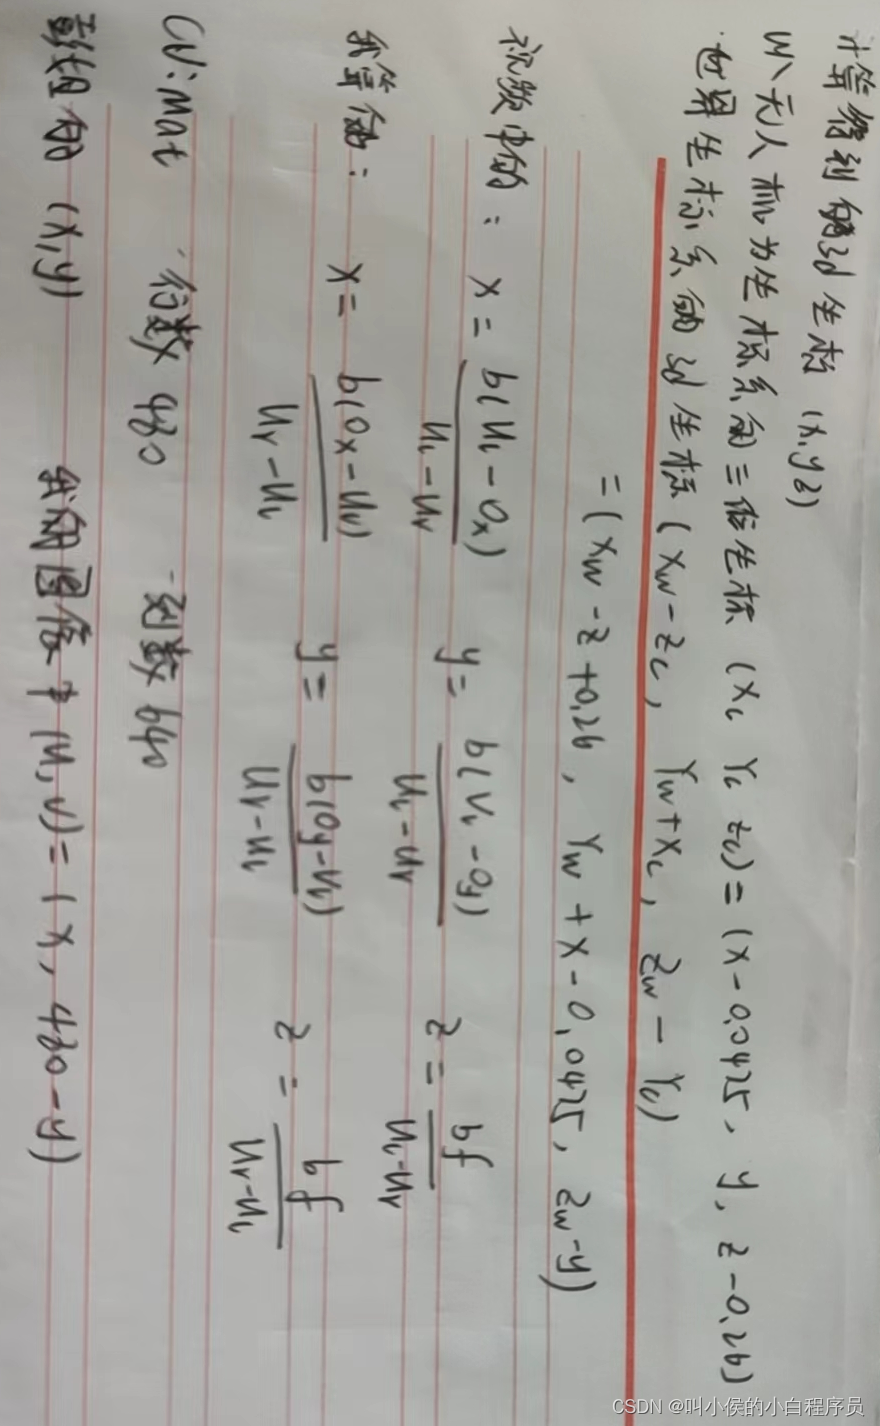 计算得到的3d坐标 (x,y z)
以无人机为坐标系的三维坐标 (Xc Yc Zc) = (x-0.0425, y, z-0.26)
世界坐标系的3d坐标 (Xw-Zc, Yw+Xc, Zw-Yc)
= (Xw-z+0.26, Yw+x-0.0425, Zw-y)
视频中的: x = b(ul-ox)/(ul-ur) y = b(vl-oy)/(ul-ur) z = bf/(ul-ur)
我算的: x = b(ox-ur)/(ur-ul) y = b(oy-vl)/(ur-ul) z = bf/(ur-ul)
CV:Mat 行数 480 列数 640
的 (x,y) 我的图像中 (u,v) = (x, 480-y)
CSDN @叫小侯的小白程序员